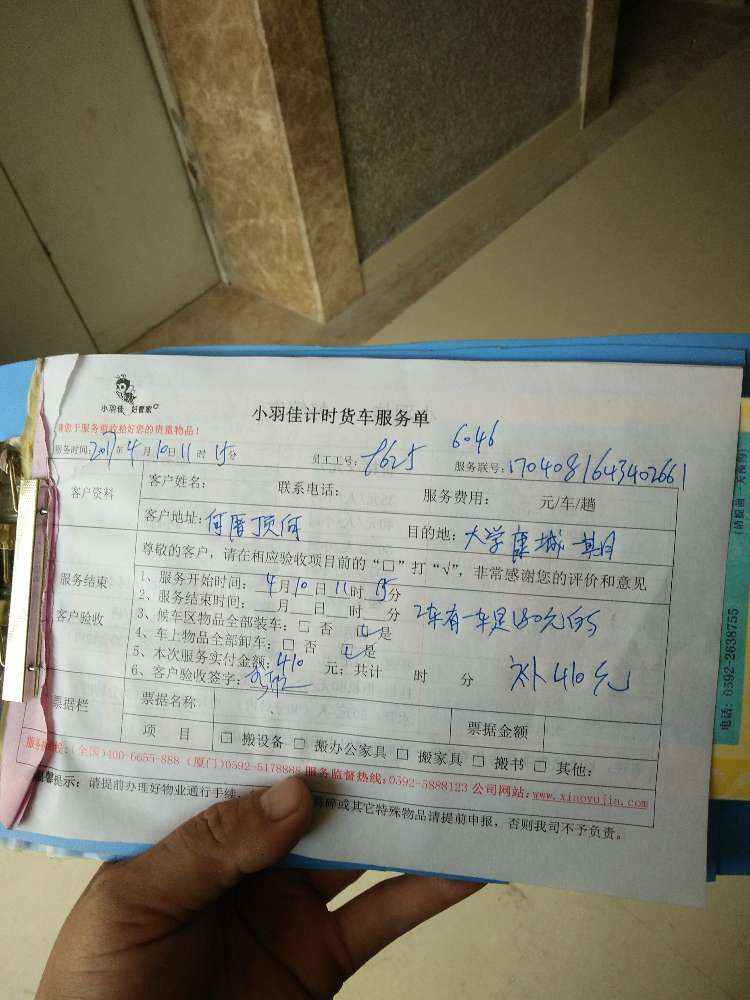 小羽佳 好管家
小羽佳计时货车服务单
6046
请您于服务前收拾好您的贵重物品!
服务时间:2017年4月10日11时15分 员工工号:8625 服务联号:1704081643402661
客户资料
客户姓名: 联系电话: 服务费用: 元/车/趟
客户地址:何厝顶何 目的地:大学康城
服务结束
客户验收
尊敬的客户,请在相应验收项目前的“□”打“√”,非常感谢您的评价和意见
1、服务开始时间:4月10日11时15分
2、服务结束时间: 月 日 时 分
2车有一车是180元的
3、候车区物品全部装车:□ 否 □ 是
4、车上物品全部卸车:□ 否 □ 是
5、本次服务实付金额:410元;共计 时 分
补410元
6、客户验收签字:
票据栏
票据名称 票据金额
项 目 □ 搬设备 □ 搬办公家具 □ 搬家具 □ 搬书 □ 其他:
服务热线:(全国)400-6655-888 (厦门)0592-5178888 服务监督热线:0592-5888123 公司网站:www.xinoyujia.com
温馨提示:请提前办理好物业通行手续, 易碎或其它特殊物品请提前申报,否则我司不予负责。
电话:0592-2638755